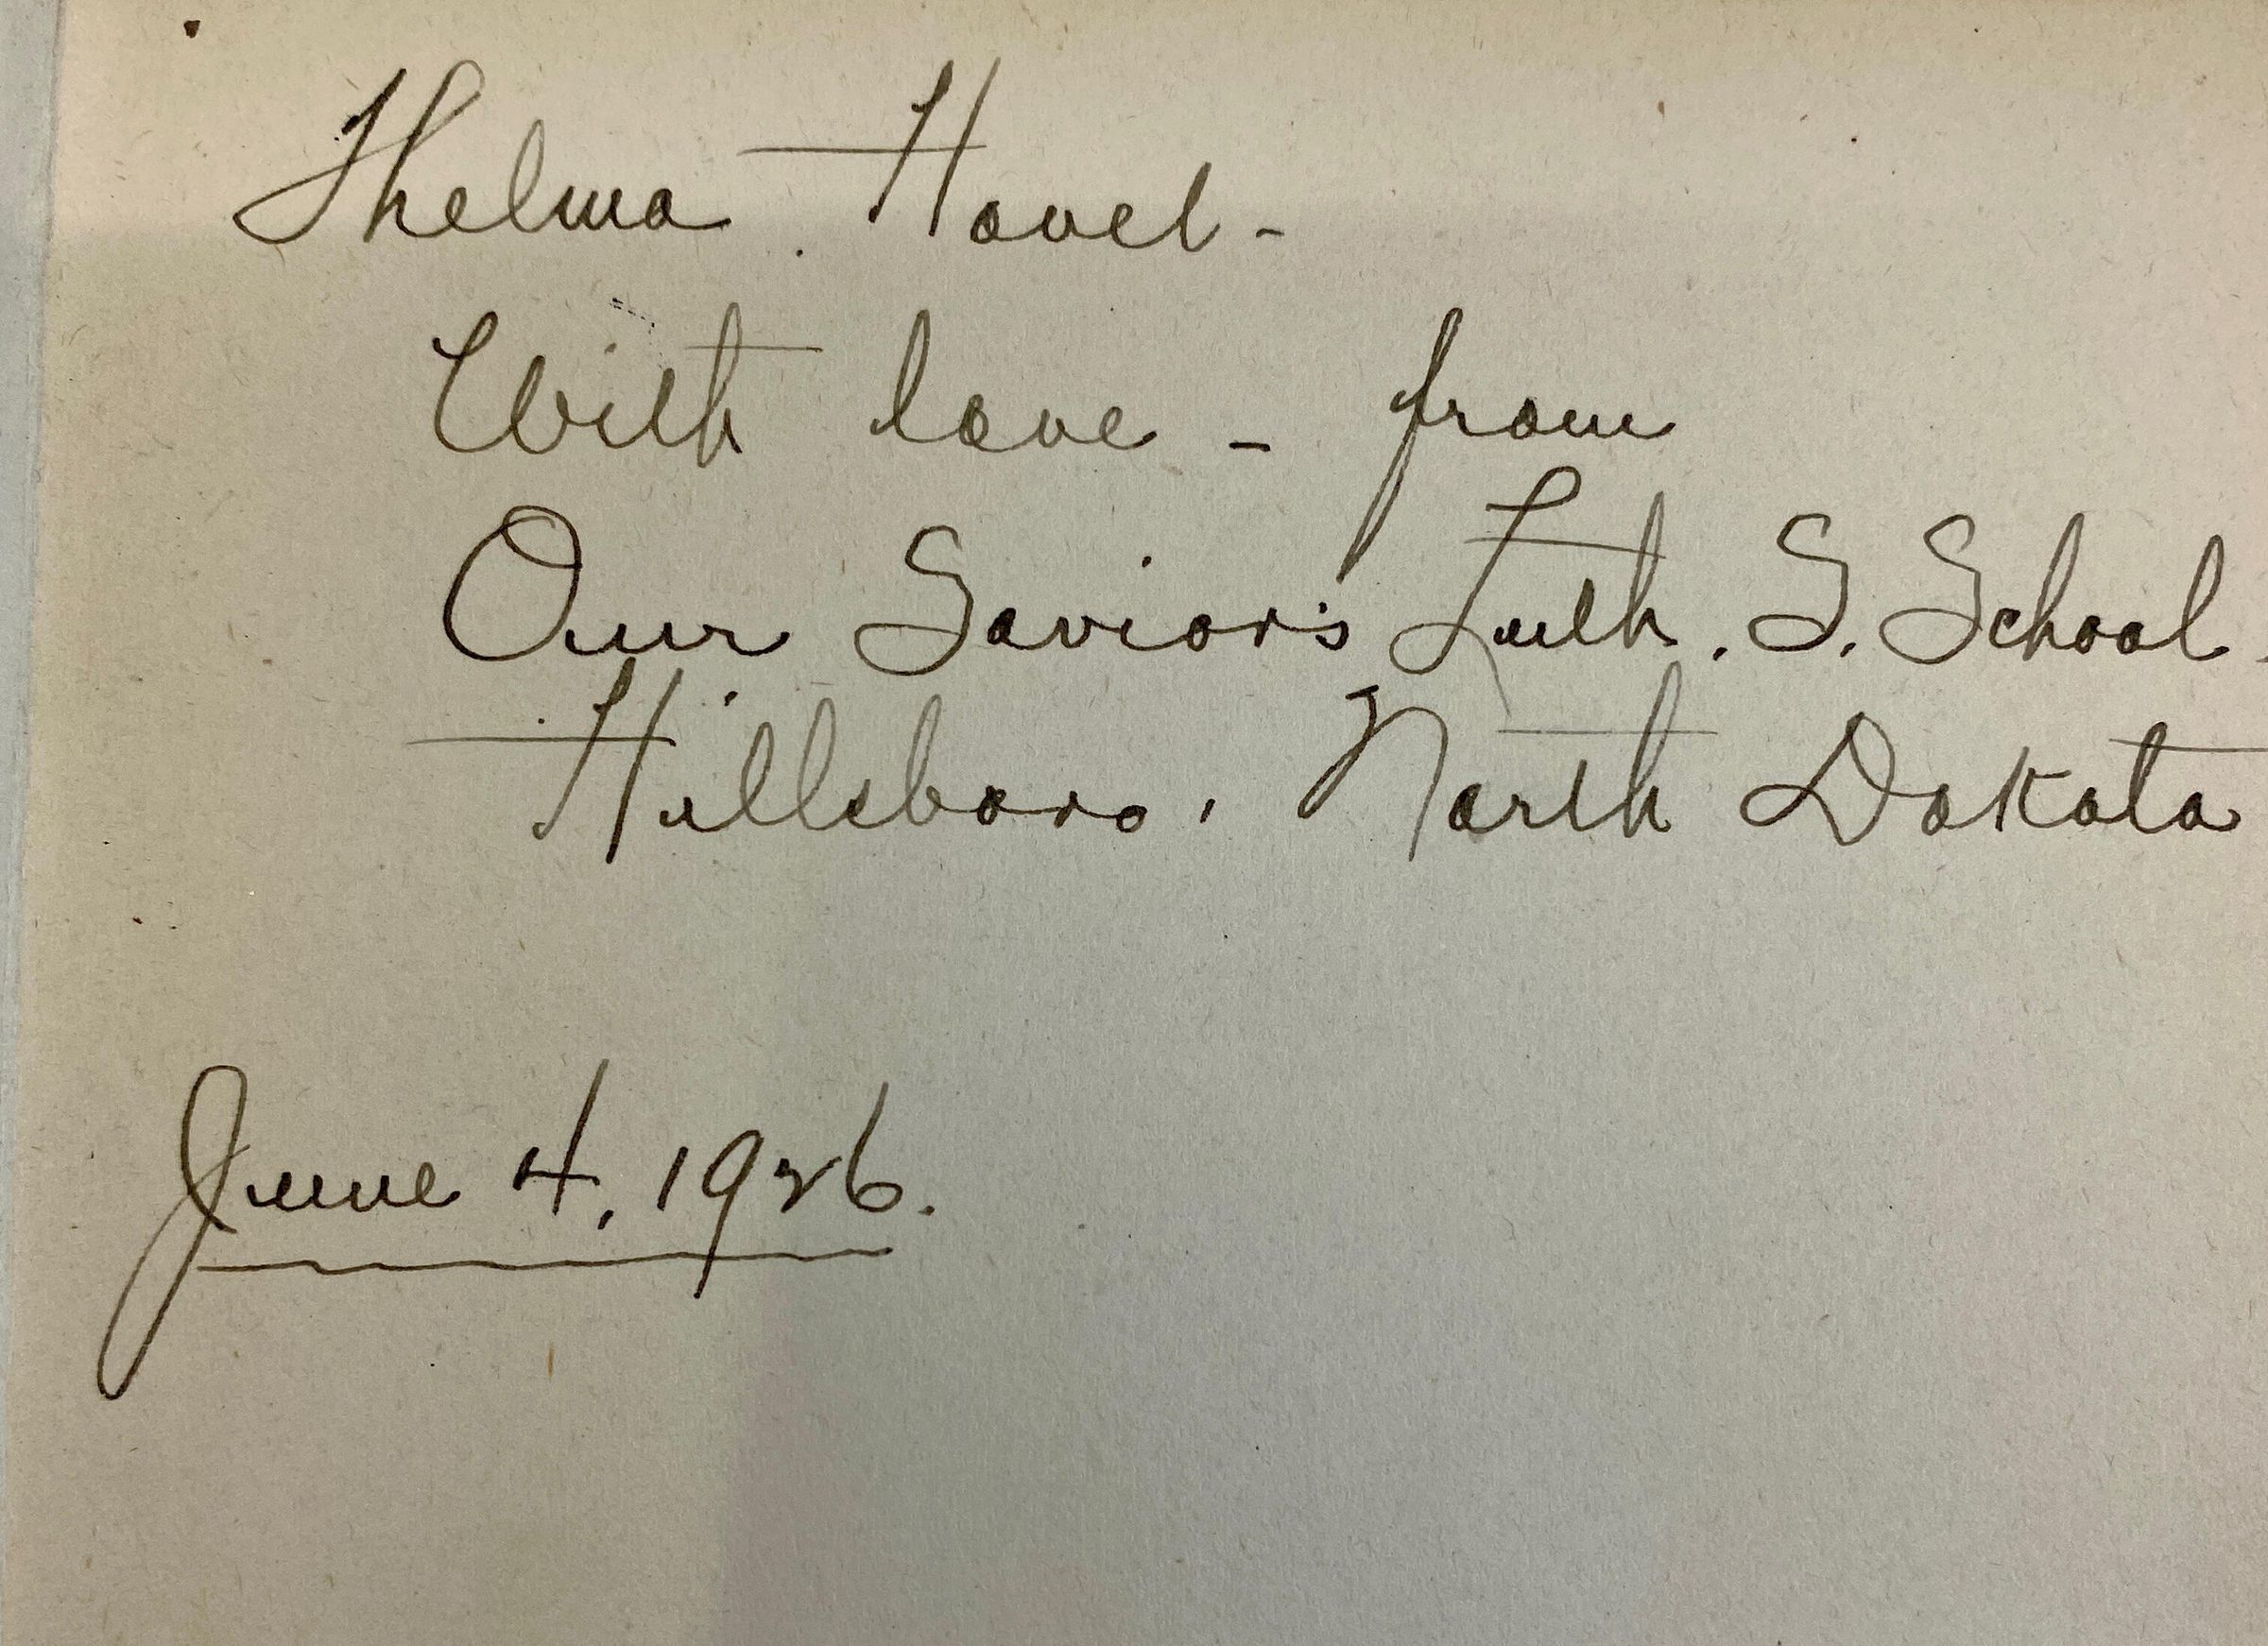 Thelma Hovel -
With love - from
Our Savior's Luth. S. School.
Hillsboro, North Dakota
June 4, 1926.